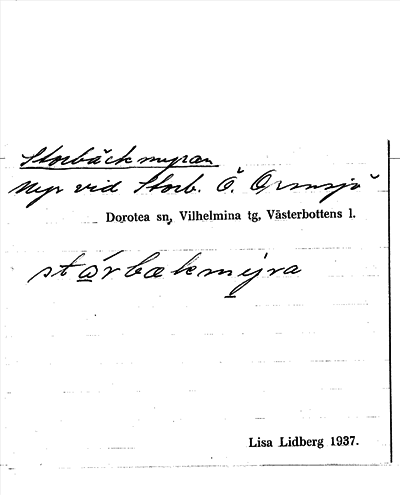 Storbäckmyran
Myr vid Storb. Ö. Ormsjö
Dorotea sn, Vilhelmina tg, Västerbottens l.
stårbækmyra
Lisa Lidberg 1937.